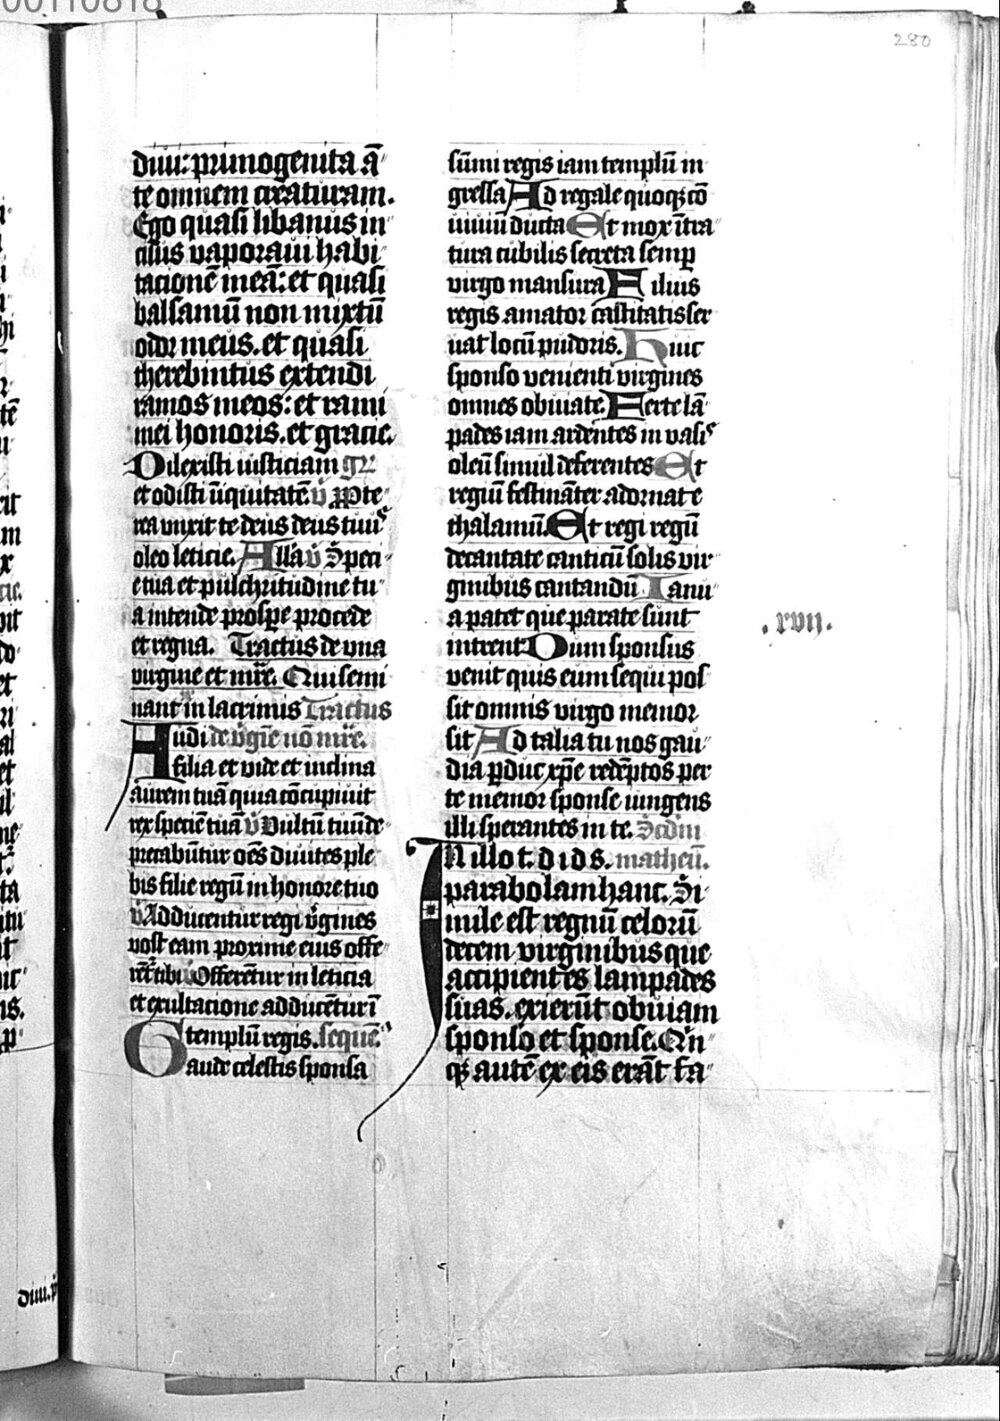 280
diui: primogenita ā
te omnem creaturam.
Ego quasi libanus in
cisus vaporaui habi
tacionē meā: et quasi
balsamū non mixtū
odor meus. et quasi
therebintus extendi
ramos meos: et rami
mei honoris. et gracie.
Dilexisti iusticiam gͬ
et odisti īiquitatē v̄ ꝓpte
rea vnxit te deus deus tuus
oleo leticie. Alla v̄ Speci
e tua et pulchritudine tu
a intende prospe procede
et regna. Tractus de vna
virgine et mr̄e. Qui semi
nant in lacrimis Tractus
Audi de v̄gīe nō mr̄e.
filia et vide et inclina
aurem tuā quia cōcupiuit
rex speciē tuā v̄ Vultū tuū de
precabūtur oēs diuites ple
bis filie regū in honore tuo
v̄ Adducentur regi v̄gines
post eam proxime eius offe
rēt̄ tibi v̄ Offerētur in leticia
et exultacione adducētur ī
templū regis. sequē.
Gaude celestis sponsa
sūmi regis iam templū in
gressa Ad regale quoqꝫ cō
uiuiū ducta Et mox ītra
tura cubilis secreta semp
virgo mansura Filius
regis amator castitatis ser
uat locū pudoris. Huic
sponso venienti virgines
omnes obuiate. Ferte lā
pades iam ardentes in vasis
oleū simul deferentes Et
regiū festināter adornate
thalamū. Et regi regū
decantate canticū solis vir
ginibus cantandū Ianu
a patet que parate sunt
intrent Dum sponsus
venit quis eum sequi pos
sit omnis virgo memor
sit Ad talia tu nos gau
dia ꝑduc xp̄e redēptos per
te memor sponse iungens
illi sperantes in te. Scdm
In illo t. d. i d. s. matheū.
parabolam hanc. Si
mile est regnū celorū
decem virginibus que
accipientes lampades
suas. exierūt obuiam
sponso et sponse. Qin
qꝫ autē ex eis erāt fa
.xvii.